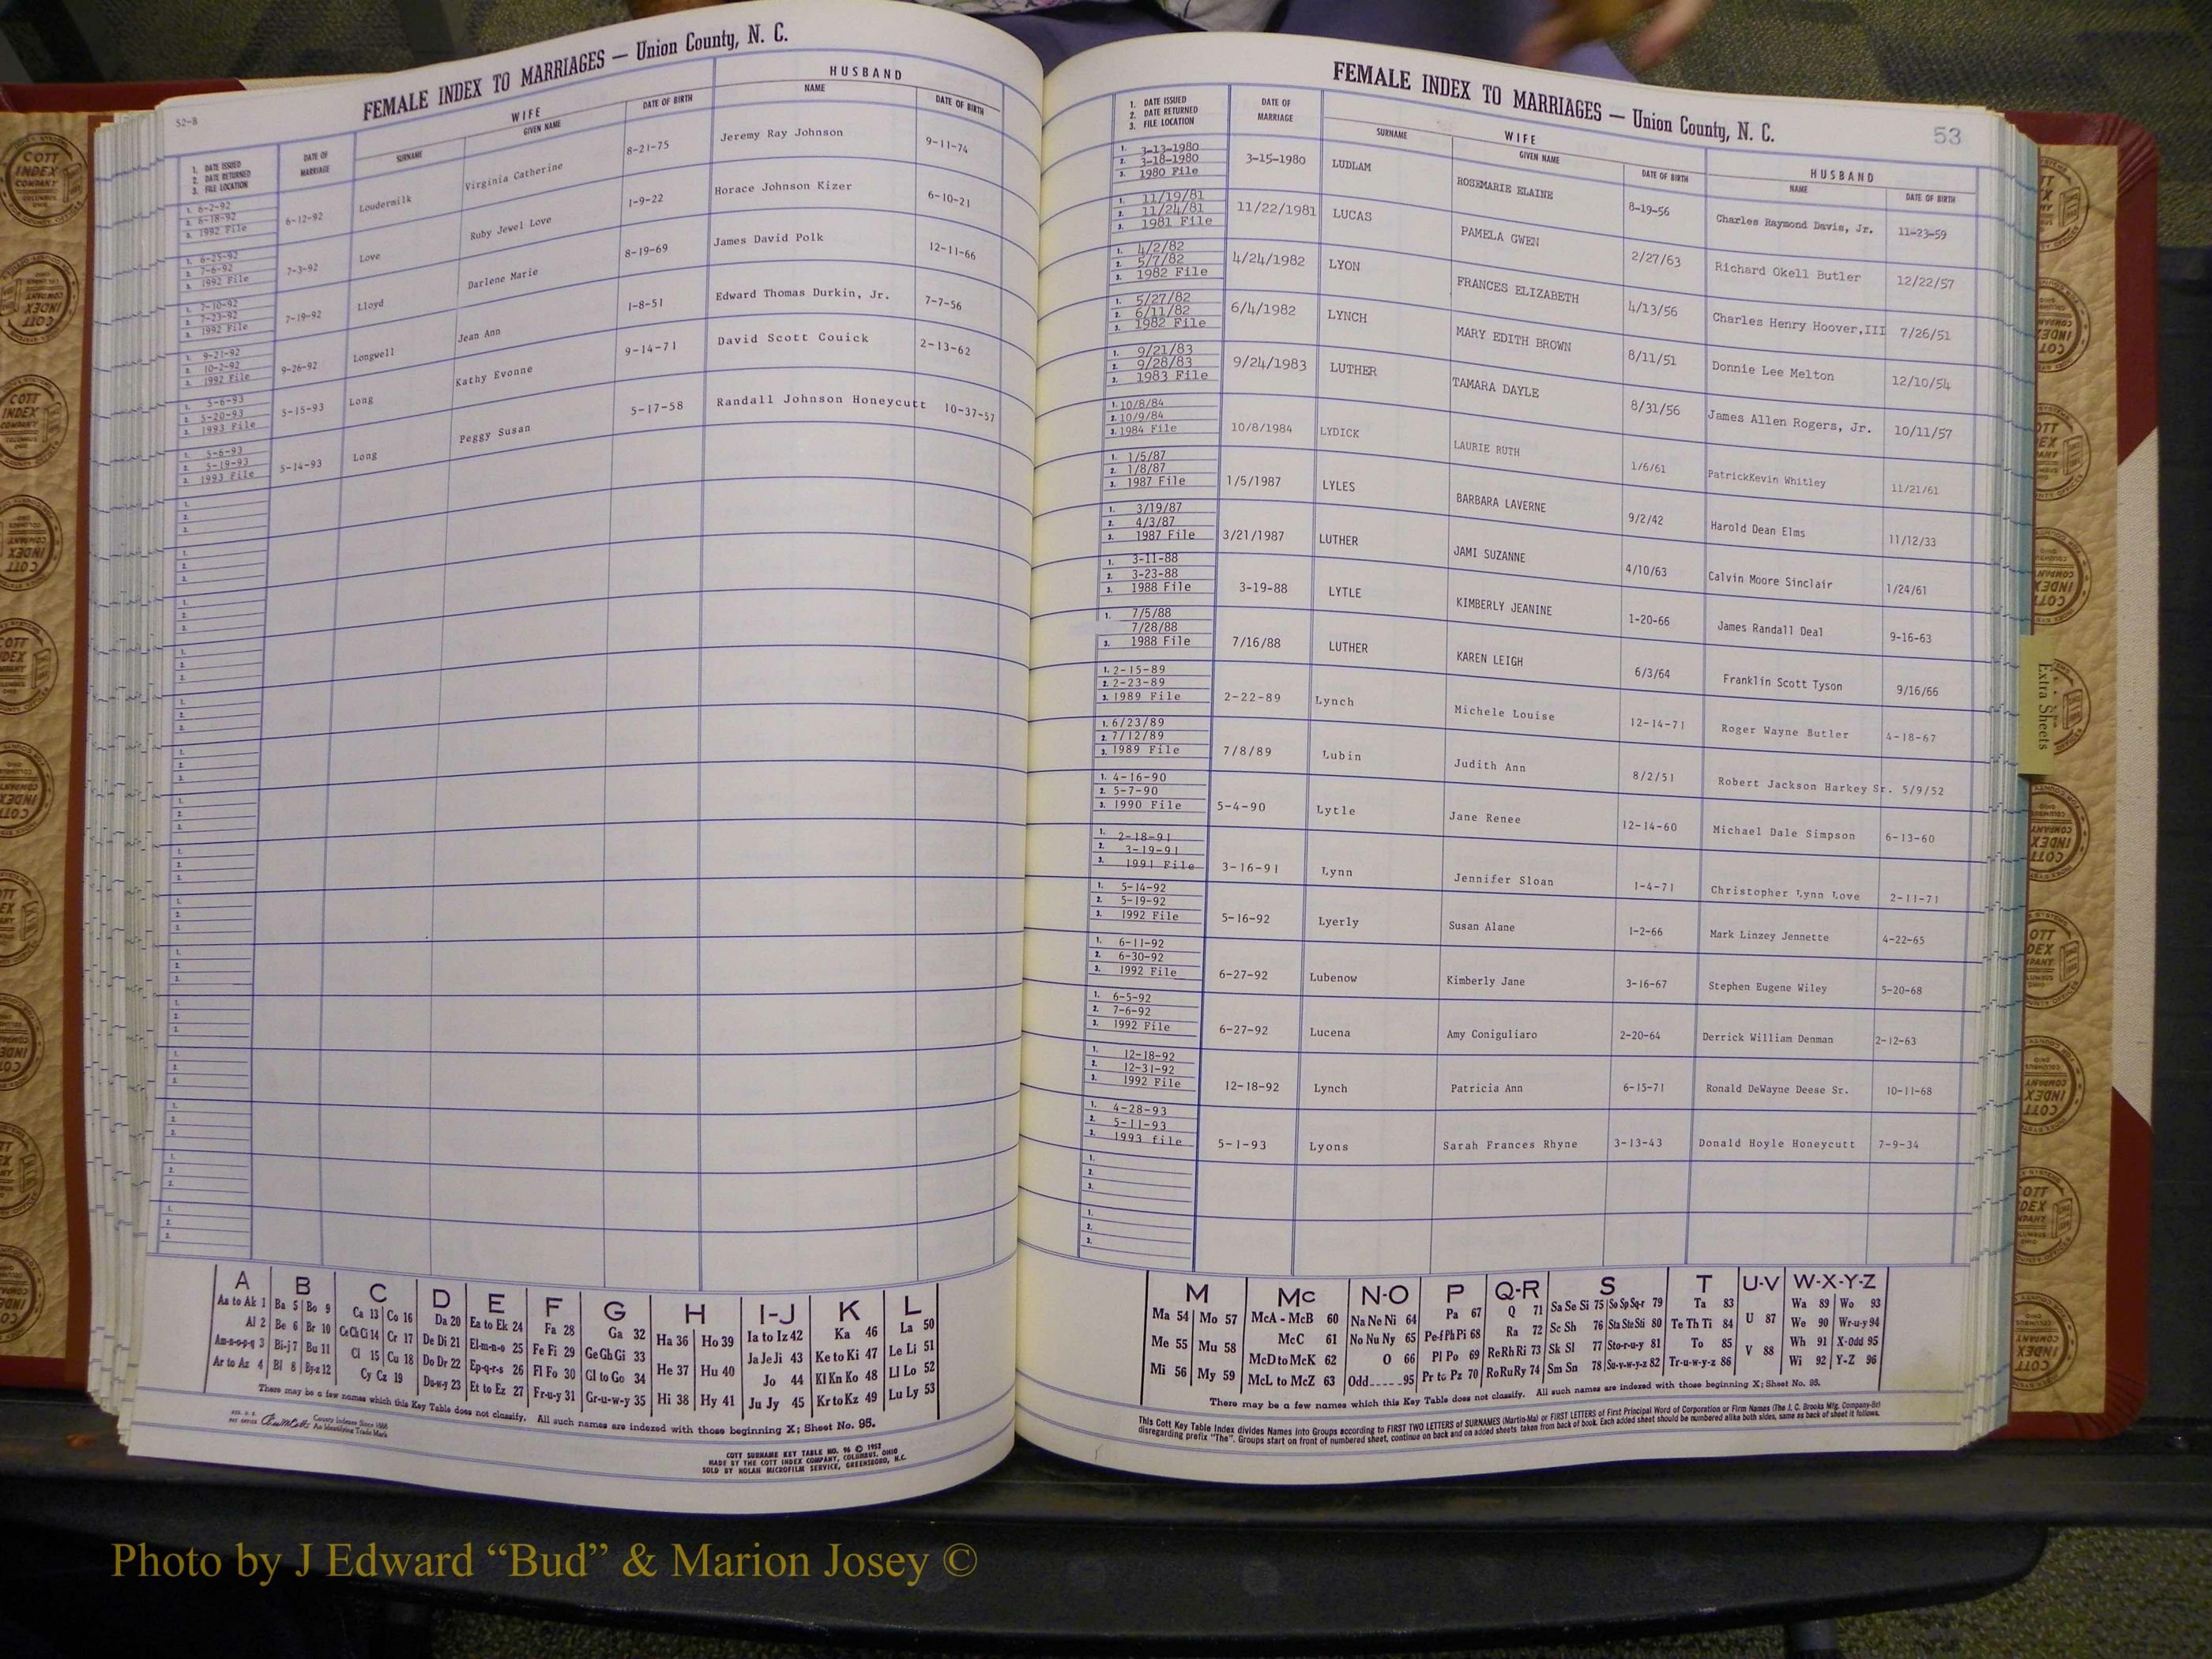 52-B
FEMALE INDEX TO MARRIAGES — Union County, N. C.
1. DATE ISSUED
2. DATE RETURNED
3. FILE LOCATION
DATE OF MARRIAGE
WIFE
SURNAME GIVEN NAME DATE OF BIRTH
HUSBAND
NAME DATE OF BIRTH
1. 6-2-92
2. 6-18-92
3. 1992 File
6-12-92 Loudermilk Virginia Catherine 8-21-75 Jeremy Ray Johnson 9-11-74
1. 6-25-92
2. 7-6-92
3. 1992 File
7-3-92 Love Ruby Jewel Love 1-9-22 Horace Johnson Kizer 6-10-21
1. 7-10-92
2. 7-23-92
3. 1992 File
7-19-92 Lloyd Darlene Marie 8-19-69 James David Polk 12-11-66
1. 9-21-92
2. 10-2-92
3. 1992 File
9-26-92 Longwell Jean Ann 1-8-51 Edward Thomas Durkin, Jr. 7-7-56
1. 5-6-93
2. 5-20-93
3. 1993 File
5-15-93 Long Kathy Evonne 9-14-71 David Scott Couick 2-13-62
1. 5-6-93
2. 5-19-93
3. 1993 File
5-14-93 Long Peggy Susan 5-17-58 Randall Johnson Honeycutt 10-37-57
A B C D E F G H I-J K L
Aa to Ak 1 Ba 5 Bo 9 Ca 13 Co 16 Da 20 Ea to Ek 24 Fa 28 Ga 32 Ha 36 Ho 39 Ia to Iz 42 Ka 46 La 50
Al 2 Be 6 Br 10 Ce Ch Ci 14 Cr 17 De Di 21 El-m-n-o 25 Fe Fi 29 Ge Gh Gi 33 Ja Je Ji 43 Ke to Ki 47 Le Li 51
Am-n-o-p-q 3 Bi-j 7 Bu 11 Cl 15 Cu 18 Do Dr 22 Ep-q-r-s 26 Fl Fo 30 Gl to Go 34 He 37 Hu 40 Jo 44 Kl Kn Ko 48 Ll Lo 52
Ar to Az 4 Bl 8 By-z 12 Cy Cz 19 Du-w-y 23 Et to Ez 27 Fr-u-y 31 Gr-u-w-y 35 Hi 38 Hy 41 Ju Jy 45 Kr to Kz 49 Lu Ly 53
There may be a few names which this Key Table does not classify. All such names are indexed with those beginning X; Sheet No. 95.
County Indexes Since 1888
An Identifying Trade Mark
COTT SURNAME KEY TABLE NO. 96 © 1953
MADE BY THE COTT INDEX COMPANY, COLUMBUS, OHIO
SOLD BY NOLAN MICROFILM SERVICE, GREENSBORO, N.C.
FEMALE INDEX TO MARRIAGES — Union County, N. C.
53
1. DATE ISSUED
2. DATE RETURNED
3. FILE LOCATION
DATE OF MARRIAGE
WIFE
SURNAME GIVEN NAME DATE OF BIRTH
HUSBAND
NAME DATE OF BIRTH
1. 3-13-1980
2. 3-18-1980
3. 1980 File
3-15-1980 LUDLAM ROSEMARIE ELAINE 8-19-56 Charles Raymond Davis, Jr. 11-23-59
1. 11/19/81
2. 11/24/81
3. 1981 File
11/22/1981 LUCAS PAMELA GWEN 2/27/63 Richard Okell Butler 12/22/57
1. 4/2/82
2. 5/7/82
3. 1982 File
4/24/1982 LYON FRANCES ELIZABETH 4/13/56 Charles Henry Hoover,III 7/26/51
1. 5/27/82
2. 6/11/82
3. 1982 File
6/4/1982 LYNCH MARY EDITH BROWN 8/11/51 Donnie Lee Melton 12/10/54
1. 9/21/83
2. 9/28/83
3. 1983 File
9/24/1983 LUTHER TAMARA DAYLE 8/31/56 James Allen Rogers, Jr. 10/11/57
1. 10/8/84
2. 10/9/84
3. 1984 File
10/8/1984 LYDICK LAURIE RUTH 1/6/61 PatrickKevin Whitley 11/21/61
1. 1/5/87
2. 1/8/87
3. 1987 File
1/5/1987 LYLES BARBARA LAVERNE 9/2/42 Harold Dean Elms 11/12/33
1. 3/19/87
2. 4/3/87
3. 1987 File
3/21/1987 LUTHER JAMI SUZANNE 4/10/63 Calvin Moore Sinclair 1/24/61
1. 3-11-88
2. 3-23-88
3. 1988 File
3-19-88 LYTLE KIMBERLY JEANINE 1-20-66 James Randall Deal 9-16-63
1. 7/5/88
7/28/88
3. 1988 File
7/16/88 LUTHER KAREN LEIGH 6/3/64 Franklin Scott Tyson 9/16/66
1. 2-15-89
2. 2-23-89
3. 1989 File
2-22-89 Lynch Michele Louise 12-14-71 Roger Wayne Butler 4-18-67
1. 6/23/89
2. 7/12/89
3. 1989 File
7/8/89 Lubin Judith Ann 8/2/51 Robert Jackson Harkey Sr. 5/9/52
1. 4-16-90
2. 5-7-90
3. 1990 File
5-4-90 Lytle Jane Renee 12-14-60 Michael Dale Simpson 6-13-60
1. 2-18-91
2. 3-19-91
3. 1991 File
3-16-91 Lynn Jennifer Sloan 1-4-71 Christopher Lynn Love 2-11-71
1. 5-14-92
2. 5-19-92
3. 1992 File
5-16-92 Lyerly Susan Alane 1-2-66 Mark Linzey Jennette 4-22-65
1. 6-11-92
2. 6-30-92
3. 1992 File
6-27-92 Lubenow Kimberly Jane 3-16-67 Stephen Eugene Wiley 5-20-68
1. 6-5-92
2. 7-6-92
3. 1992 File
6-27-92 Lucena Amy Coniguliaro 2-20-64 Derrick William Denman 2-12-63
1. 12-18-92
2. 12-31-92
3. 1992 File
12-18-92 Lynch Patricia Ann 6-15-71 Ronald DeWayne Deese Sr. 10-11-68
1. 4-28-93
2. 5-11-93
3. 1993 file
5-1-93 Lyons Sarah Frances Rhyne 3-13-43 Donald Hoyle Honeycutt 7-9-34
Extra Sheets
M Mc N-O P Q-R S T U-V W-X-Y-Z
Ma 54 Mo 57 McA - McB 60 Na Ne Ni 64 Pa 67 Q 71 Sa Se Si 75 So Sp Sq-r 79 Ta 83 U 87 Wa 89 Wo 93
Me 55 Mu 58 McC 61 No Nu Ny 65 Pe-f Ph Pi 68 Ra 72 Sc Sh 76 Sta Ste Sti 80 Te Th Ti 84 We 90 Wr-u-y 94
McD to McK 62 O 66 Pl Po 69 Re Rh Ri 73 Sk Sl 77 Sto-r-u-y 81 To 85 V 88 Wh 91 X-Odd 95
Mi 56 My 59 McL to McZ 63 Odd 95 Pr to Pz 70 Ro Ru Ry 74 Sm Sn 78 Su-v-w-y-z 82 Tr-u-w-y-z 86 Wi 92 Y-Z 96
There may be a few names which this Key Table does not classify. All such names are indexed with those beginning X; Sheet No. 95.
This Cott Key Table Index divides Names into Groups according to FIRST TWO LETTERS of SURNAMES (Martin-Ma) or FIRST LETTERS of First Principal Word of Corporation or Firm Names (The J. C. Brooks Mfg. Company-Br)
disregarding prefix "The". Groups start on front of numbered sheet, continue on back and on added sheets taken from back of book. Each added sheet should be numbered alike both sides, same as back of sheet it follows.
Photo by J Edward “Bud” & Marion Josey ©